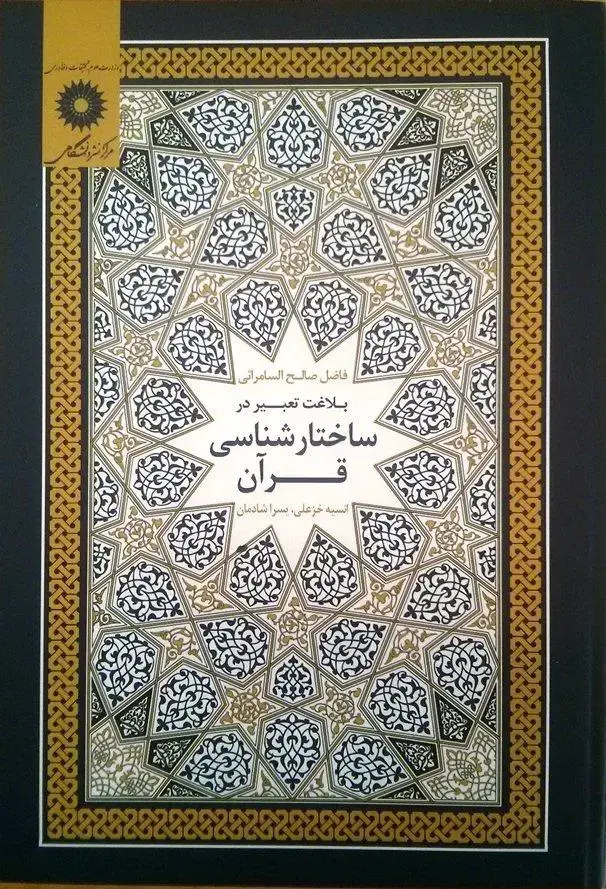 وزارت علوم، تحقیقات و فناوری
مرکز نشر دانشگاهی
فاضل صالح السامرائی
بلاغت تعبیر در
ساختارشناسی
قرآن
انسیه خزعلی، یسرا شادمان